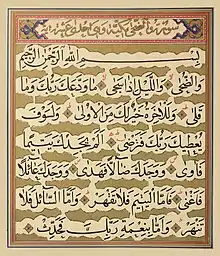 سورة الضحى مكية وهي احدى عشرة آية
بِسْمِ اللَّهِ الرَّحْمَنِ الرَّحِيمِ
وَالضُّحَى وَاللَّيْلِ إِذَا سَجَى مَا وَدَّعَكَ رَبُّكَ وَمَا
قَلَى وَلَلْآخِرَةُ خَيْرٌ لَكَ مِنَ الْأُولَى وَلَسَوْفَ
يُعْطِيكَ رَبُّكَ فَتَرْضَى أَلَمْ يَجِدْكَ يَتِيمًا
فَآوَى وَوَجَدَكَ ضَالًّا فَهَدَى وَوَجَدَكَ عَائِلًا
فَأَغْنَى فَأَمَّا الْيَتِيمَ فَلَا تَقْهَرْ وَأَمَّا السَّائِلَ فَلَا
تَنْهَرْ وَأَمَّا بِنِعْمَةِ رَبِّكَ فَحَدِّثْ